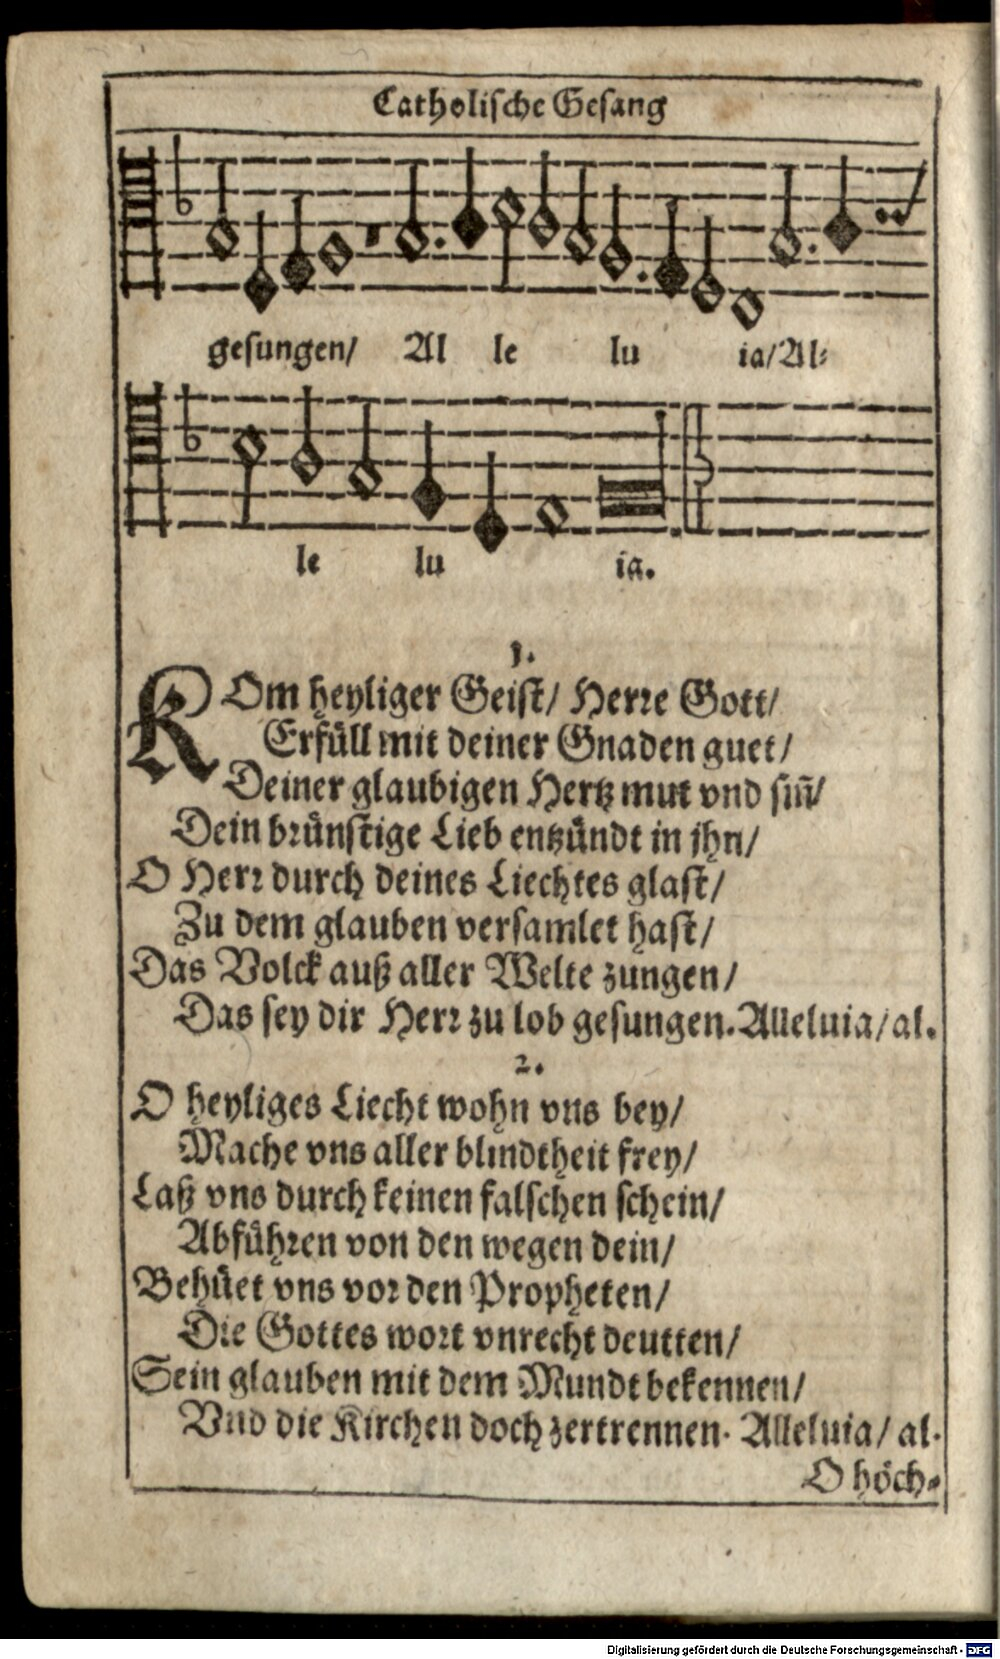 Catholische Gesang
gesungen/ Al le lu ia/Al⸗
le lu ia.
1.
KOm heyliger Geist/ Herre Gott/
Erfüll mit deiner Gnaden guet/
Deiner glaubigen Hertz mut vnd siñ/
Dein brünstige Lieb entzündt in jhn/
O Herr durch deines Liechtes glast/
Zu dem glauben versamlet hast/
Das Volck auß aller Welte zungen/
Das sey dir Herr zu lob gesungen. Alleluia/ al.
2.
O heyliges Liecht wohn vns bey/
Mache vns aller blindtheit frey/
Laß vns durch keinen falschen schein/
Abführen von den wegen dein/
Behüet vns vor den Propheten/
Die Gottes wort vnrecht deutten/
Sein glauben mit dem Mundt bekennen/
Vnd die Kirchen doch zertrennen. Alleluia/ al.
O höch⸗
Digitalisierung gefördert durch die Deutsche Forschungsgemeinschaft - DFG